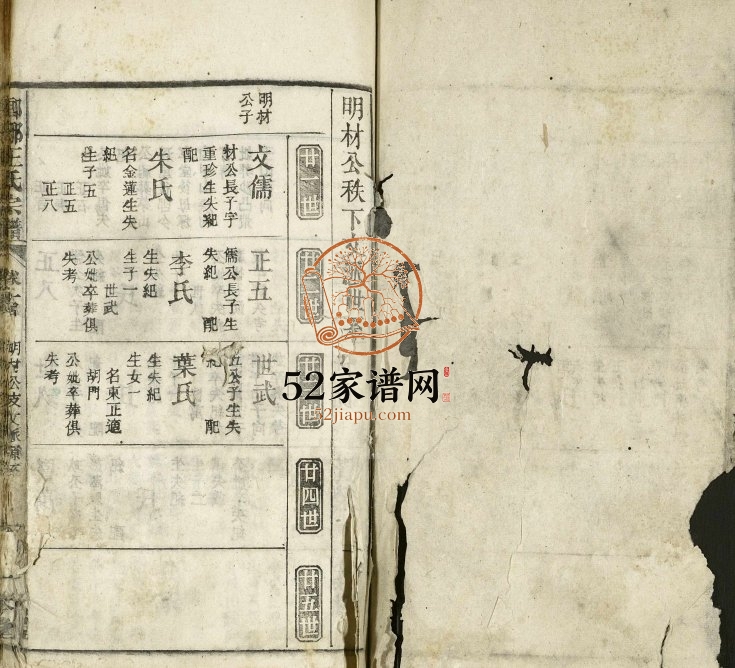 明材公秩下
廿一世
廿二世
廿四世
廿五世
明材
公子
文儒
材公長子字
重珍生失紀
配
朱氏
名金蓮生失
紀
生子五
正五
正八
正五
儒公長子生
失紀 配
李氏
生失紀
生子一
世武
公妣卒葬俱
失考
世武
五公子生失
紀 配
葉氏
生失紀
生女一
名東正適
胡門
公妣卒葬俱
失考
王氏宗譜
明材公支文
52家谱网
52jiapu.com